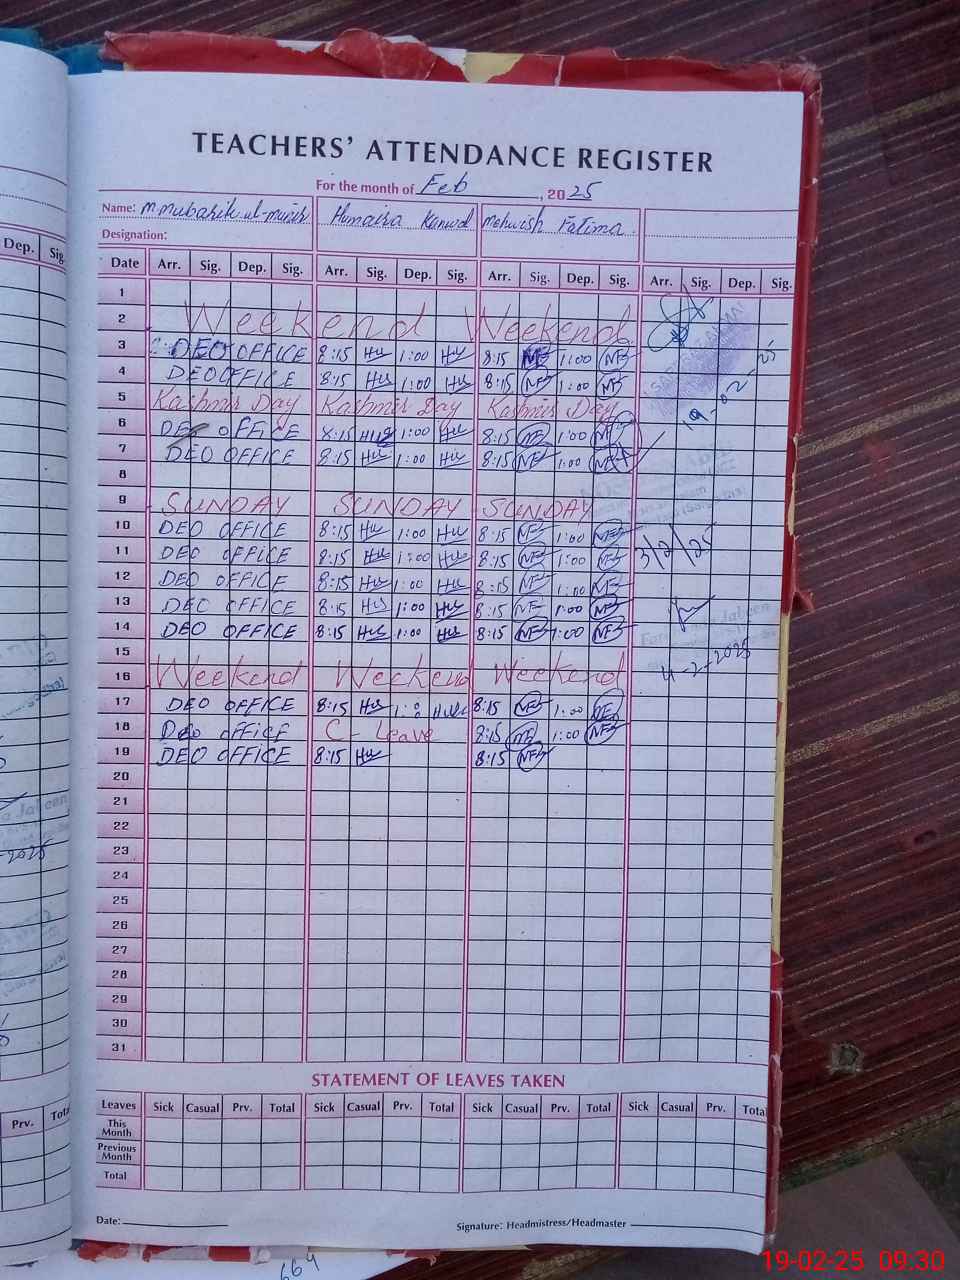 TEACHERS' ATTENDANCE REGISTER
For the month of Feb, 2025
Name: M.Mubarik ul-munir Humaira Kanwal Mehwish Fatima.
Designation:
Dep. Sig.
Date Arr. Sig. Dep. Sig. Arr. Sig. Dep. Sig. Arr. Sig. Dep. Sig. Arr. Sig. Dep. Sig.
1
2 Weekend Weekend
3 DEO OFFICE 8:15 1:00 8:15 1:00
4 DEO OFFICE 8:15 1:00 8:15 1:00
5 Kashmir Day Kashmir Day Kashmir Day
19-02-25
6 DEO OFFICE 8:15 1:00 8:15 1:00
7 DEO OFFICE 8:15 1:00 8:15 1:00
8
9 SUNDAY SUNDAY SUNDAY
10 DEO OFFICE 8:15 1:00 8:15 1:00
11 DEO OFFICE 8:15 1:00 8:15 1:00
3/2/25
12 DEO OFFICE 8:15 1:00 8:15 1:00
13 DEO OFFICE 8:15 1:00 8:15 1:00
14 DEO OFFICE 8:15 1:00 8:15 1:00
15
16 Weekend Weekend Weekend
4-2-2025
17 DEO OFFICE 8:15 8:15 1:00
18 Deo office C-Leave 8:15 1:00
19 DEO OFFICE 8:15 8:15
20
21
22
23
24
25
26
27
28
29
30
31
STATEMENT OF LEAVES TAKEN
Prv. Total
Leaves Sick Casual Prv. Total Sick Casual Prv. Total Sick Casual Prv. Total Sick Casual Prv. Total
This Month
Previous Month
Total
Date:
Signature: Headmistress/Headmaster
664
19-02-25 09:30